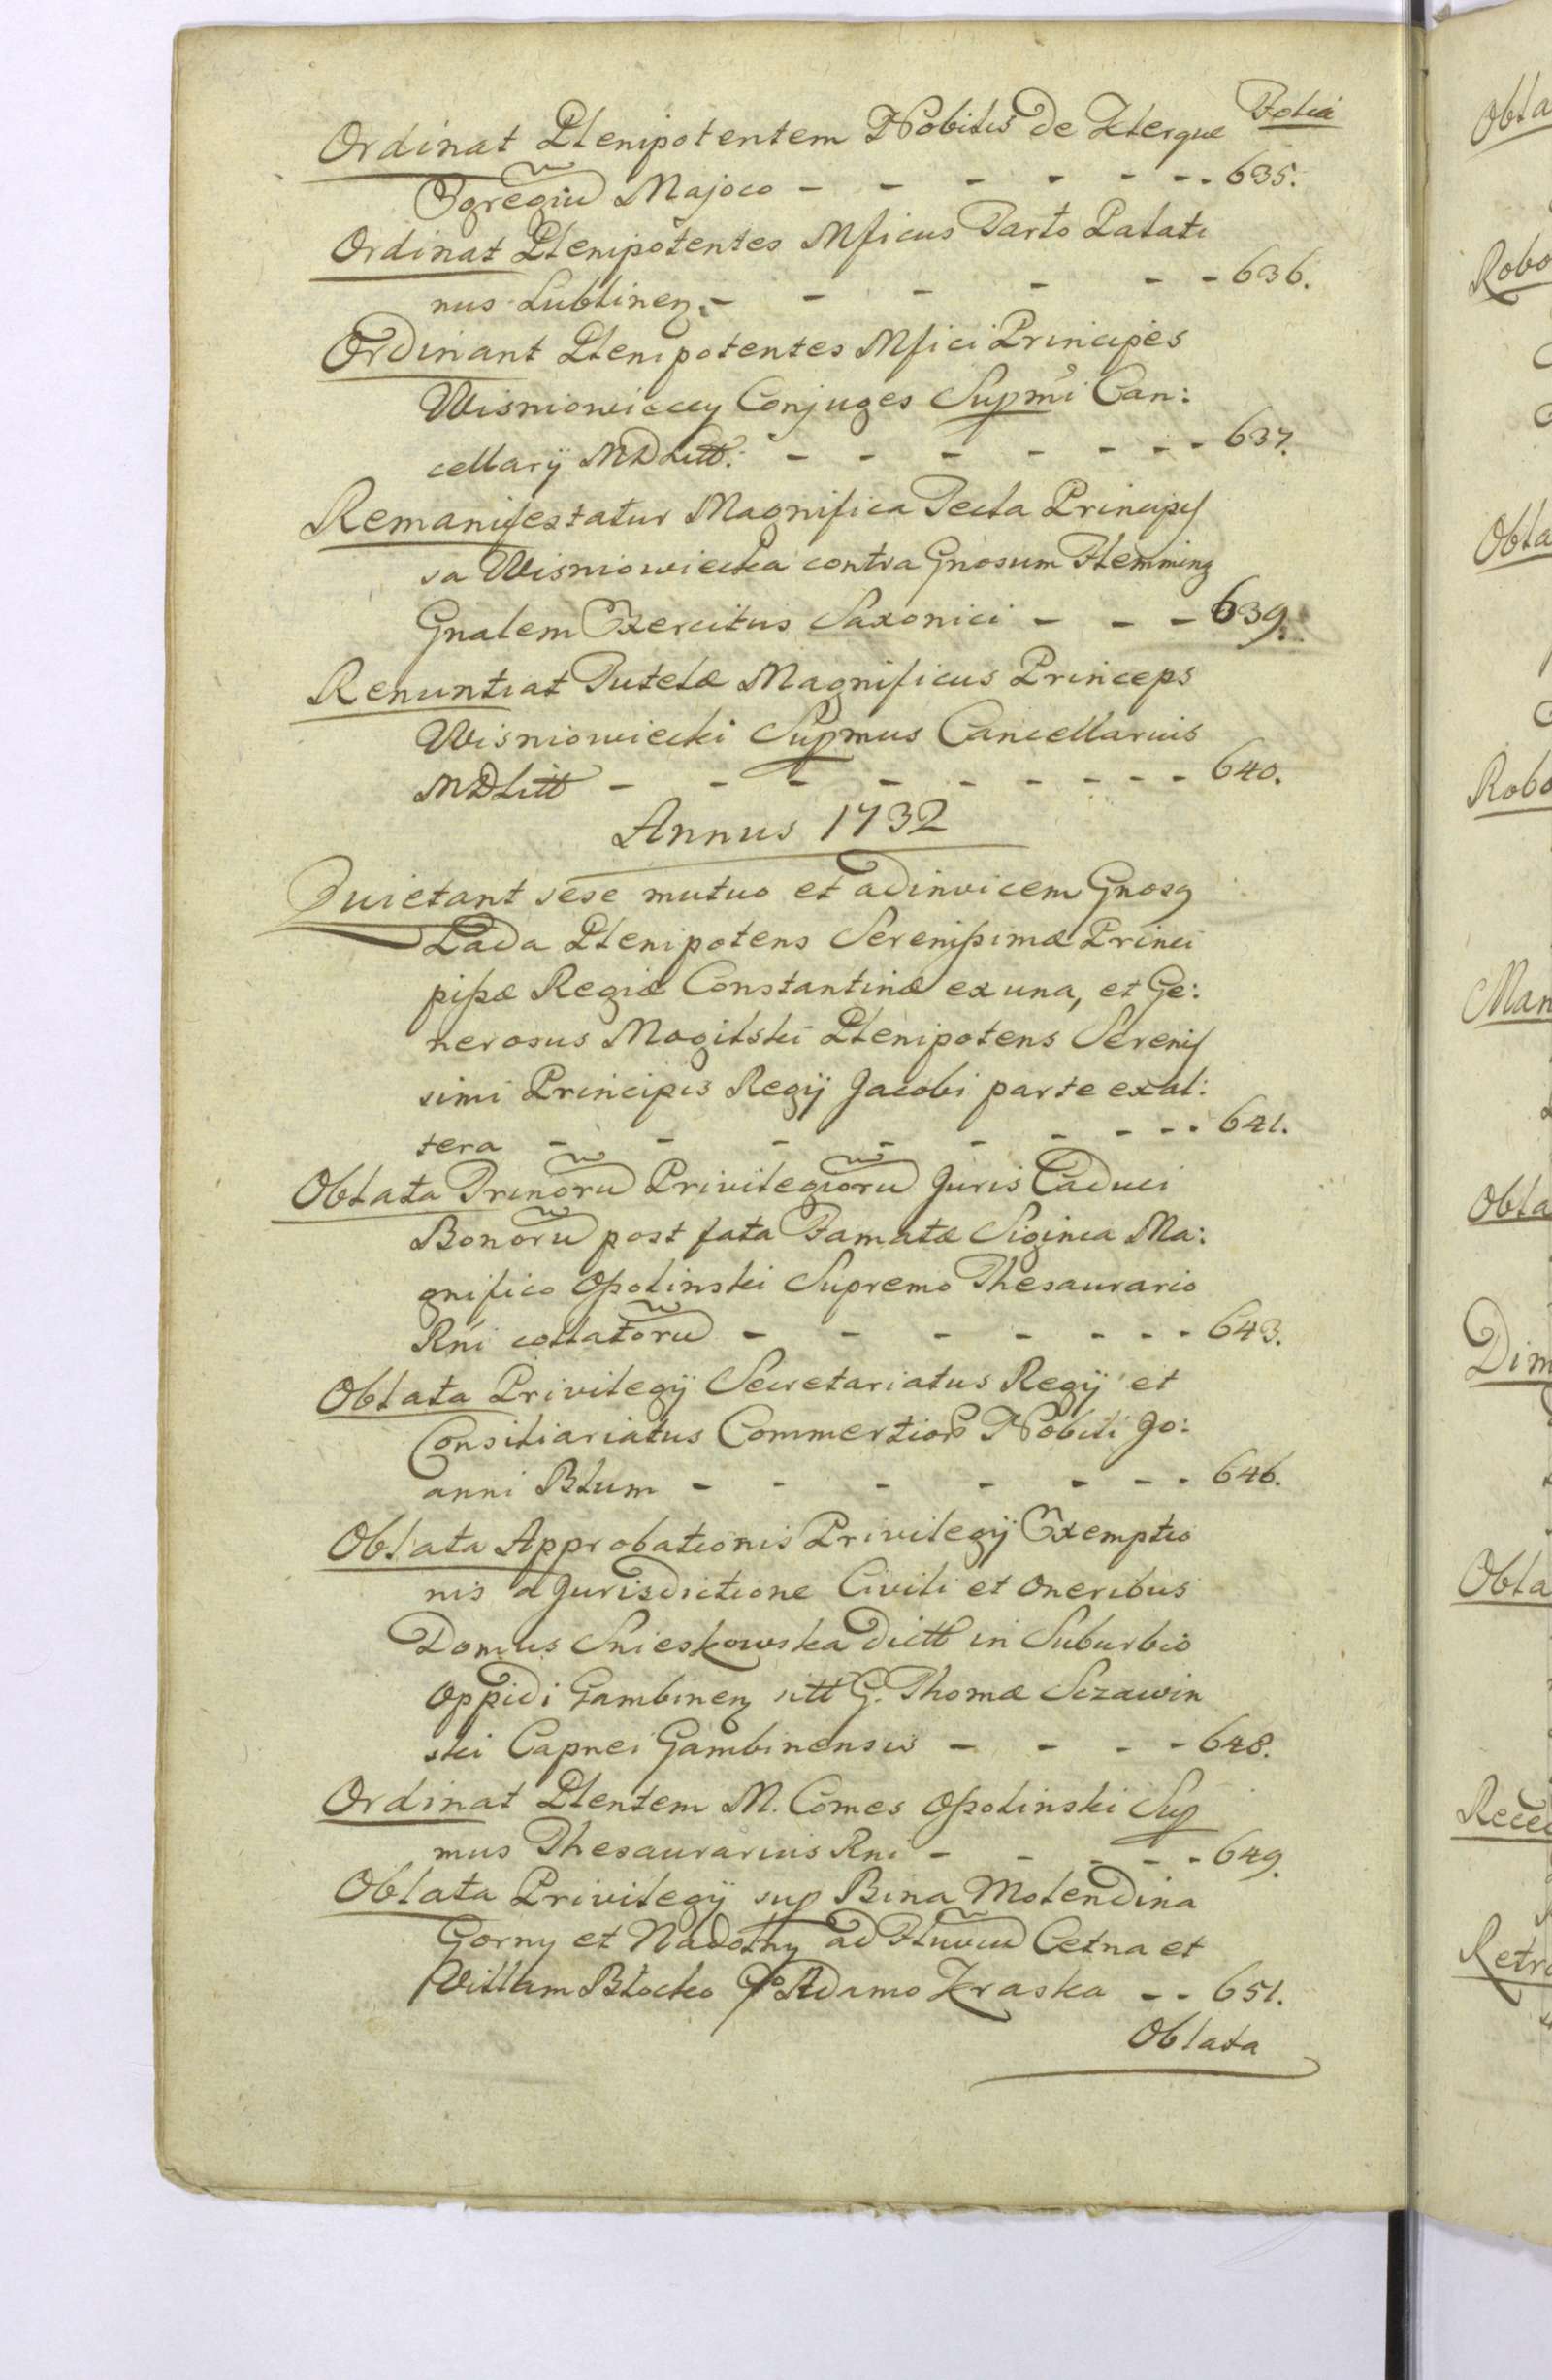 Folia
Ordinat Plenipotentem Nobilis de Klergue
Egregiũ Majoco - - - - - - - 635.
Ordinat Plenipotentes Mficus Tarło Palati
nus Lublinen - - - - - - 636.
Ordinant Plenipotentes Mfici Principes
Wisniowieccy Conjuges Supmi Can:
cellarij MDLitt: - - - - - - - 637.
Remanifestatur Magnifica Tecla Principis
sa Wisniowiecka contra Gnosum Flemming
Gnalem Exercitus Saxonici - - - 639.
Renuntiat Tutelæ Magnificus Princeps
Wisniowiecki Supmus Cancellarius
MDLitt - - - - - - - - - 640.
Annus 1732
Quietant sese mutuo et adinvicem Gnosg
Łada Plenipotens Serenissimæ Princi
pissæ Regiæ Constantinæ ex una, et Ge:
nerosus Mogilski Plenipotens Serenis
simi Principis Regij Jacobi parte ex al:
tera - - - - - - - - - 641.
Oblata Trinorũ Privilegiorũ Juris Caduci
Bonorũ post fata Famatæ Siginca Ma:
gnifico Ossolinski Supremo Thesaurario
Rni collatorũ - - - - - - - 643.
Oblata Privilegij Secretariatus Regij et
Consiliariatus Commertior Nobili Jo:
anni Blum - - - - - - - 646.
Oblata Approbationis Privilegij Exemptio
nis a Jurisdictione Civili et Oneribus
Domus Snieskowska dictt in Suburbio
Oppidi Gambinen sitt G. Thomæ Sczawin
ski Capnei Gambinensis - - - - 648.
Ordinat Plentem M. Comes Ossolinski Sup
mus Thesaurarius Rni - - - - - 649.
Oblata Privilegij sup Bina Molendina
Gorny et Nadolny ad Fluviũ Cetna et
Villam Błocko Adamo Kraska - - 651.
Oblata
Obla
Robo
Obla
Robo
Man
Obla
Dim
Obla
Rece
Retro